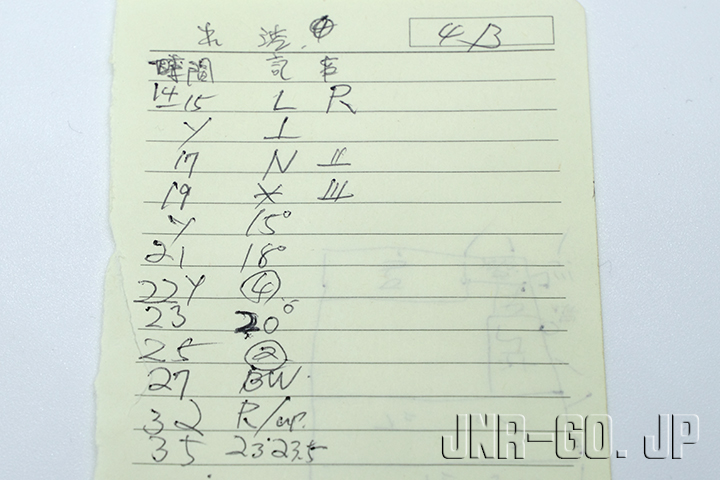 浩 4B
時間 記事
14 15 L R
Y 上
17 N 11
19 X 111
Y 15°
21 18°
22 Y ④
23 20°
25 ②
27 BW.
32 R/up.
35 23°23.5
JNR-GO.JP